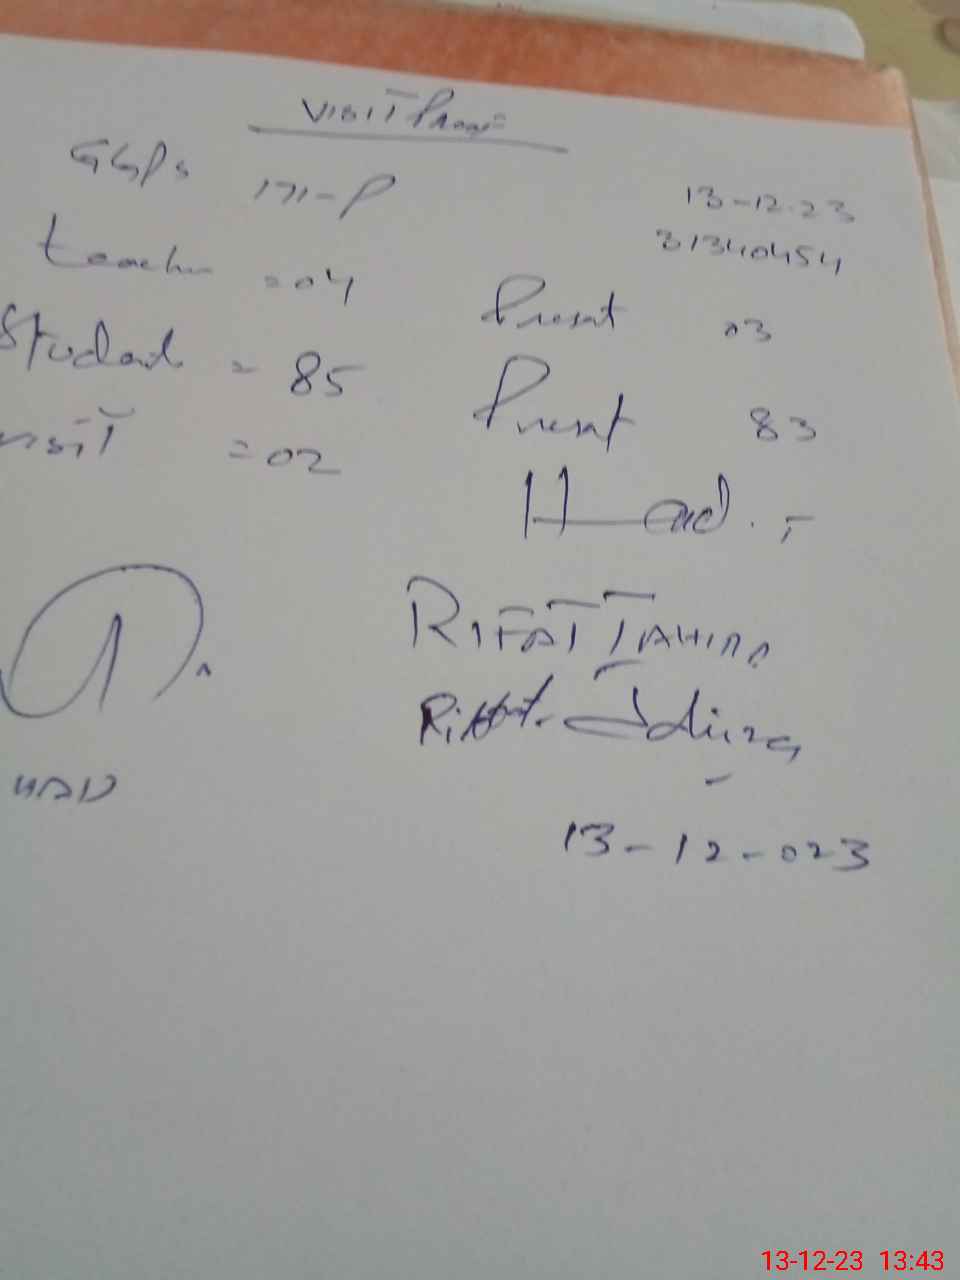 VISIT Proof
GGPS 171-P 13-12-23
31340454
teacher =04 Present 03
Student = 85 Present 83
VISIT =02
Head.
RIFAT TAHIRA
Riffat. Tahira
13-12-023
13-12-23 13:43